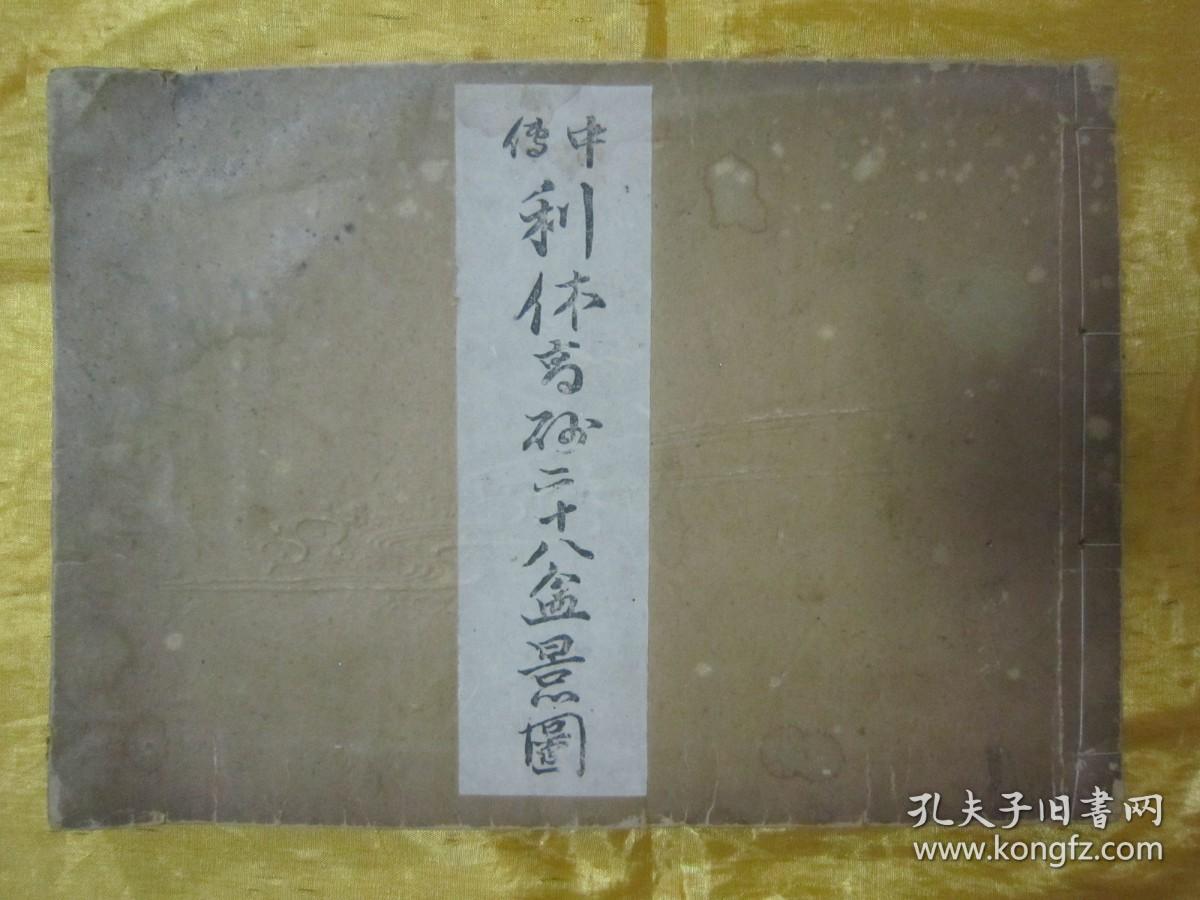 中傳
利休高砂二十八盆景圖
孔夫子旧書网
www.kongfz.com